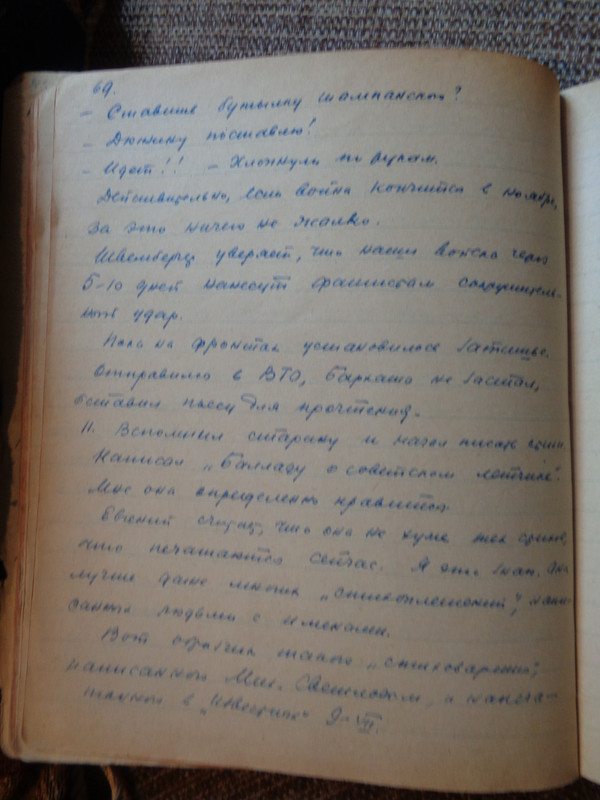 69.
– Ставите бутылку шампанского?
– Дюжину поставлю!
– Идет!! – Хлопнули по рукам.
Действительно, если война кончится в ноябре,
за это ничего не жалко.
уверяет, что наши войска через
5–10 дней нанесут фашистам сокрушитель-
ный удар.
Пока на фронтах установилось затишье.
Отправился в ВТО, не застал,
оставил пьесу для прочтения.
11. Вспомнил старину и начал писать стихи.
Написал „Балладу о советском летчике".
Мне она определенно нравится.
Евгений считает, что она не хуже тех стихов,
что печатаются сейчас. Я это знаю. Она
лучше даже многих „стихоплетений", напи-
санных людьми с именами.
Вот образчик такого „стихотварения",
написанного Мих. Светловым, и напеча-
танного в „Известиях" 9–VII.